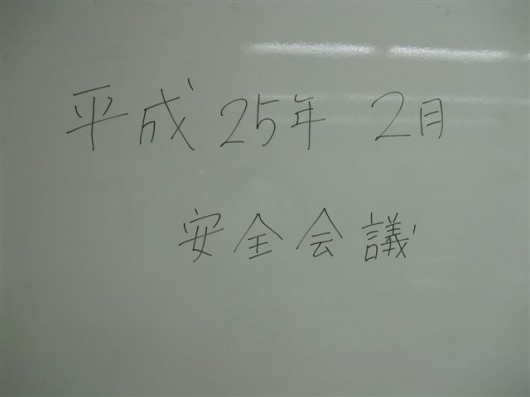 平成 25年 2月
安全会議